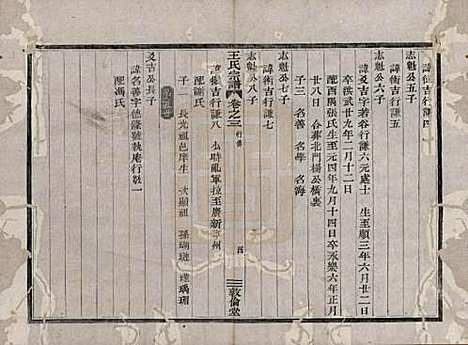 諱衛吉行謙四
志魁公五子
諱術吉行謙五
志魁公六子
諱爻吉字若谷行謙六元處士 生至順三年六月廿二日
卒洪武廿九年二月十二日
配西隅張氏生至元四年九月十四日卒永樂六年正月
廿八日 合葬北門楊公橋裏
子三 名善 名學 名海
志魁公七子
諱衡吉行謙七
志魁公八子
王氏宗譜 卷之三 行傳 四 敦倫堂
吉行謙八
配 氏
子二 長光祖邑庠生 次顯祖 孫瑚璉 璞瑀珊
爻吉公長子
諱名善字德 號執庵行敬一
配馮氏